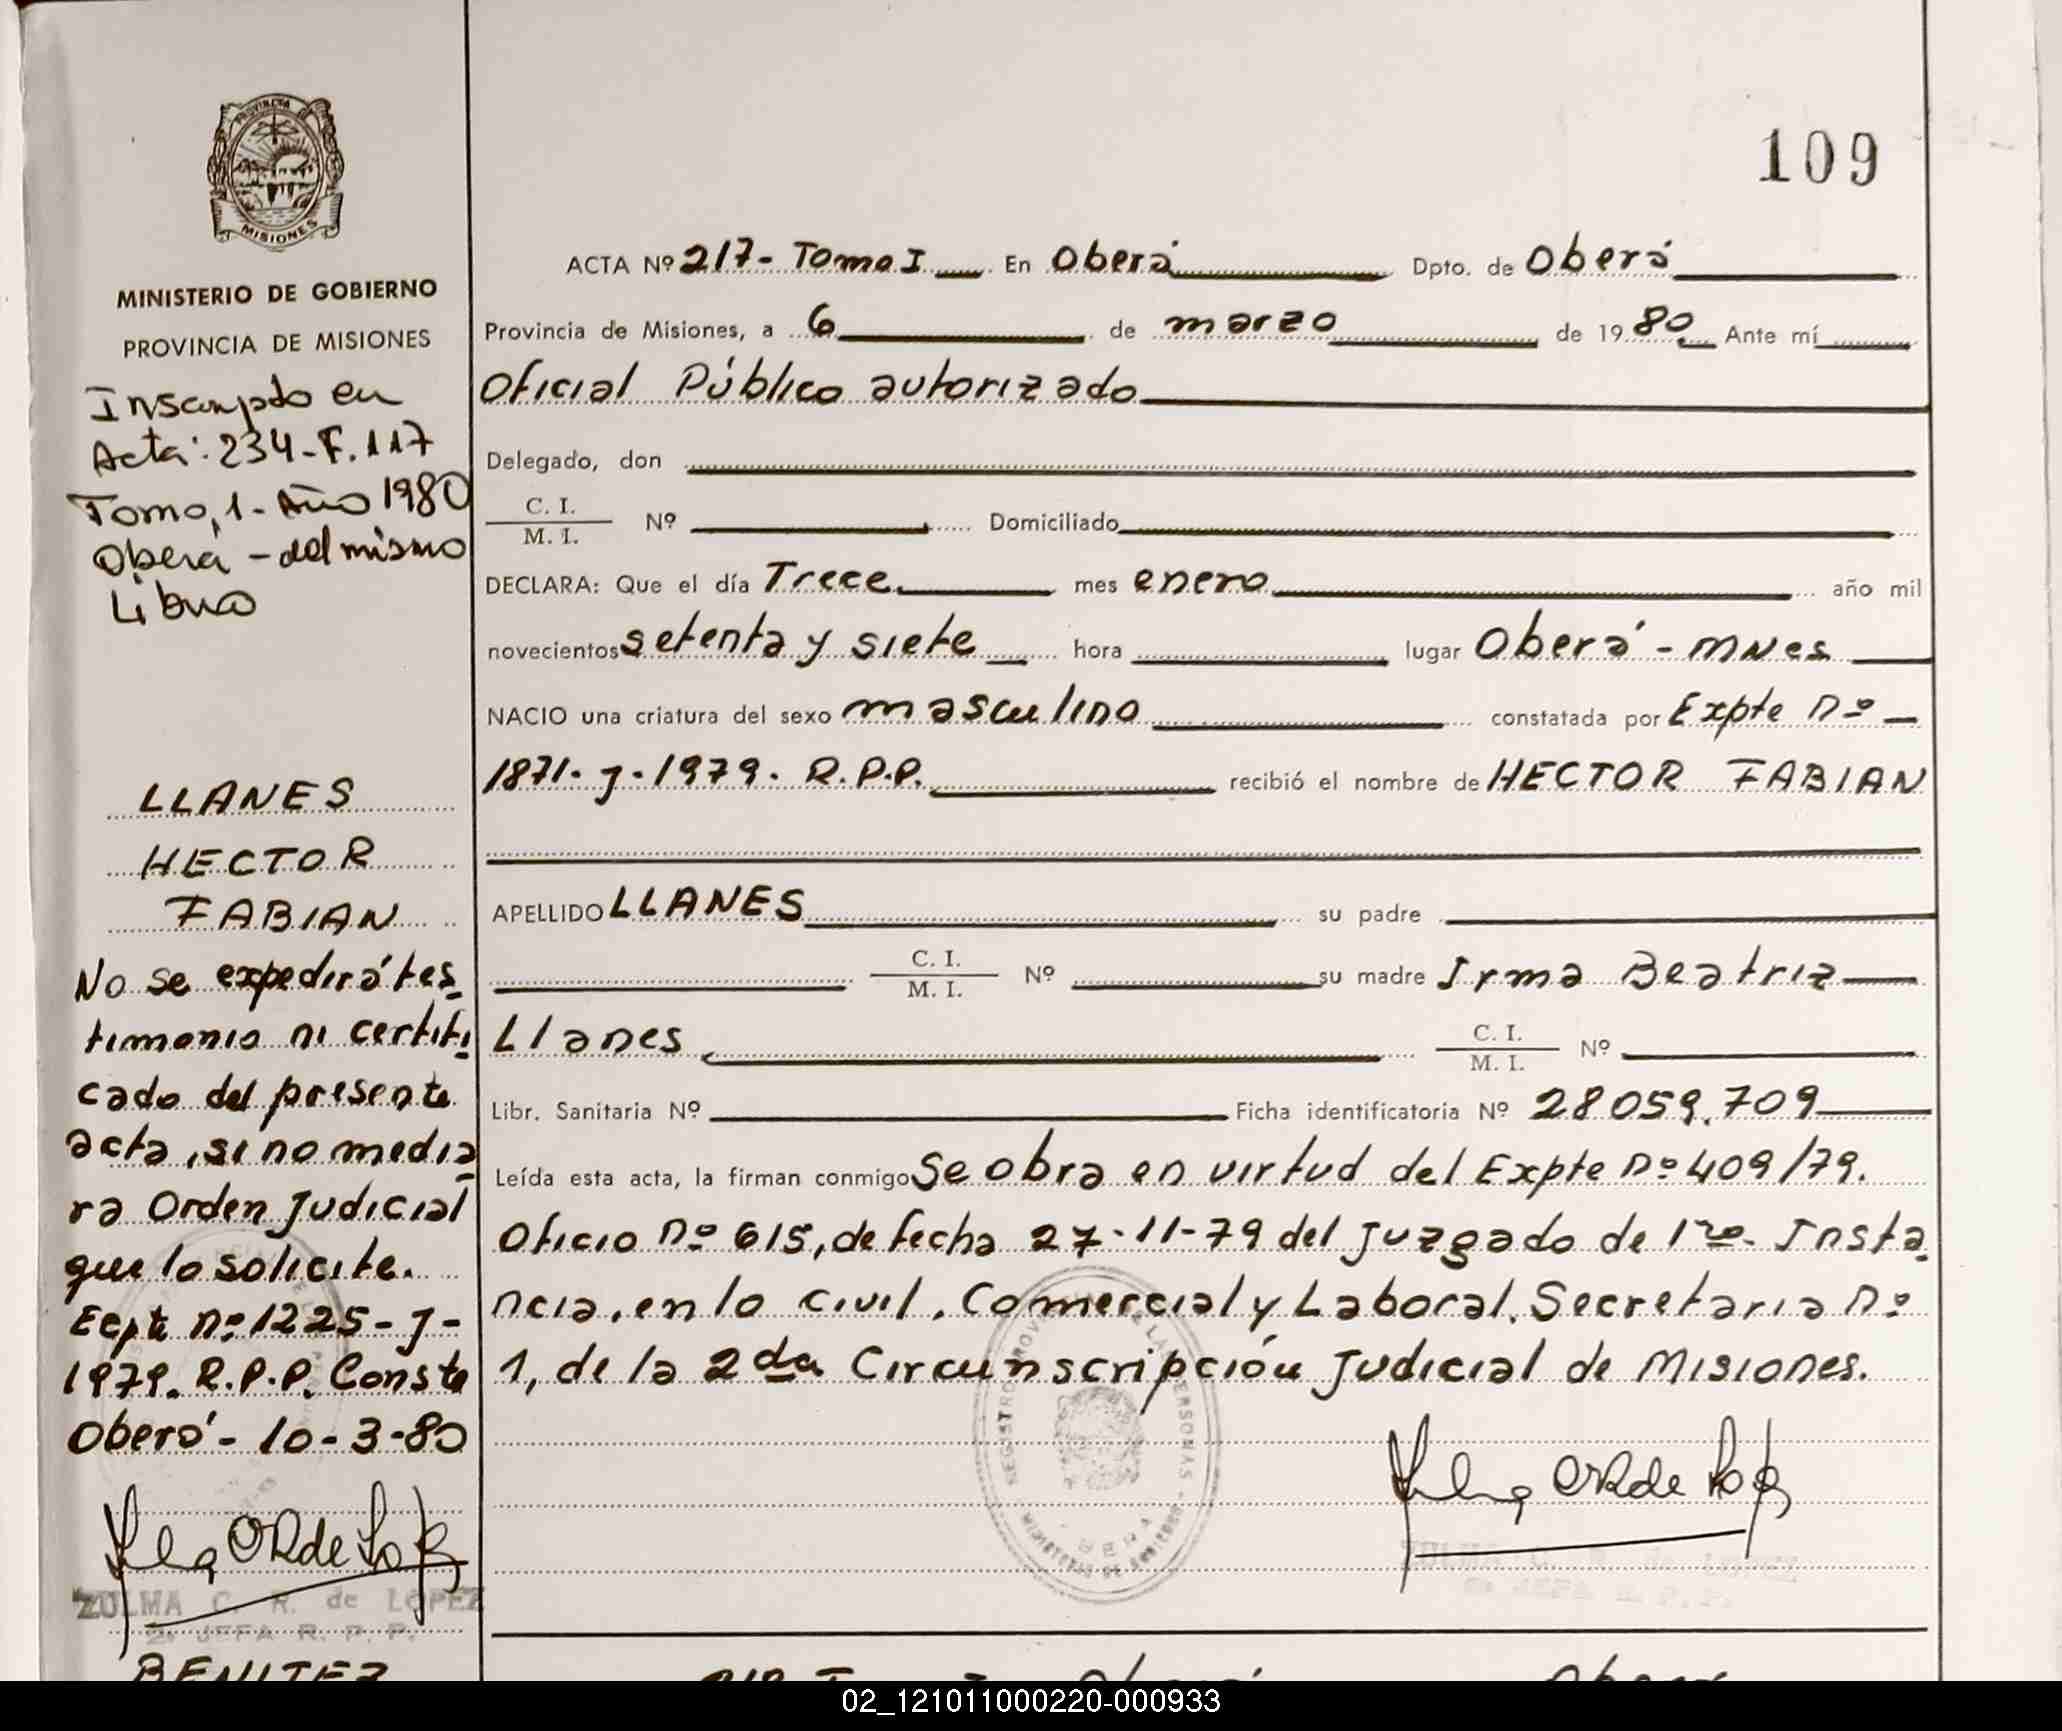 PROVINCIA
MISIONES
MINISTERIO DE GOBIERNO
PROVINCIA DE MISIONES
Inscripto en
Acta: 234-F.117
Tomo, 1-Año 1980
Oberá - del mismo
Libro
LLANES
HECTOR
FABIAN
No se expedirá tes
timonio ni certifi
cado del presente
acta, si no media
ra Orden Judicial
que lo solicite.
Ecpte nº 1225-J-
1979. R.P.P. Conste
Oberá - 10-3-80
ZULMA C. R. de LOPEZ
2ª JEFA R. P. P.
BENITEZ
109
ACTA Nº 217- Tomo I En Oberá Dpto. de Oberá
Provincia de Misiones, a 6 de marzo de 1980 Ante mí
Oficial Público autorizado
Delegado, don
C. I.
M. I. Nº Domiciliado
DECLARA: Que el día Trece mes enero año mil
novecientos setenta y siete hora lugar Oberá - MNes
NACIO una criatura del sexo masculino constatada por Expte nº
1871-J-1979. R.P.P. recibió el nombre de HECTOR FABIAN
APELLIDO LLANES su padre
C. I.
M. I. Nº su madre Irma Beatriz
Llanes C. I.
M. I. Nº
Libr. Sanitaria Nº Ficha identificatoria Nº 28059.709
Leída esta acta, la firman conmigo Se obra en virtud del Expte nº 409/79.
Oficio nº 615, de fecha 27-11-79 del Juzgado de 1ra. Insta
ncia, en lo civil, Comercial y Laboral, Secretaria nº
1, de la 2da Circunscripción Judicial de Misiones.
REGISTRO PROVINCIAL DE LAS PERSONAS
MINISTERIO DE GOBIERNO
OBERA
ZULMA C. R. de LOPEZ
2ª JEFA R. P. P.
02_121011000220-000933